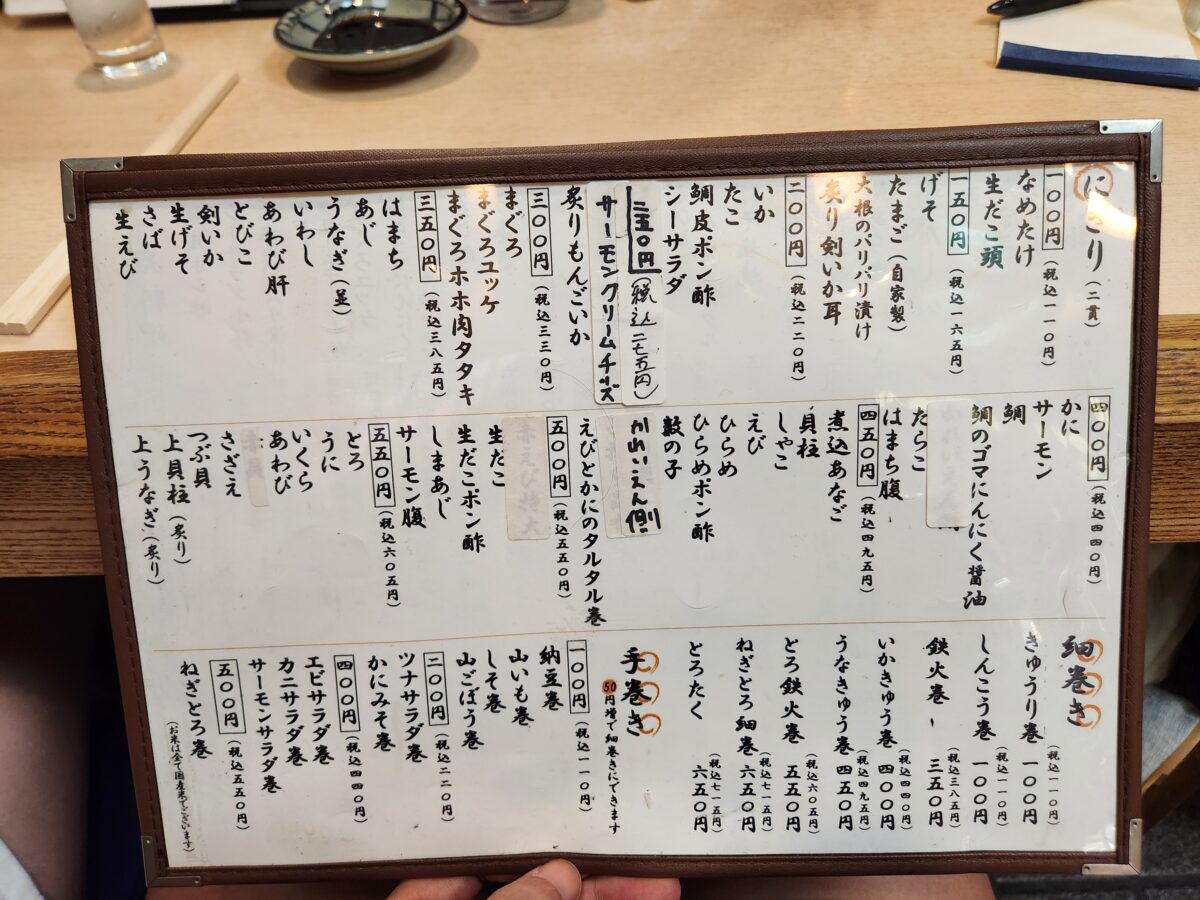 にぎり（二貫）
一〇〇円（税込一一〇円）
なめたけ
生だこ頭
一五〇円（税込一六五円）
げそ
たまご（自家製）
大根のパリパリ漬け
炙り剣いか耳
二〇〇円（税込二二〇円）
いか
たこ
鯛皮ポン酢
シーサラダ
二五〇円（税込二七五円）
サーモンクリームチーズ
炙りもんごいか
三〇〇円（税込三三〇円）
まぐろ
まぐろユッケ
まぐろホホ肉タタキ
三五〇円（税込三八五円）
はまち
あじ
うなぎ（並）
いわし
あわび肝
とびこ
剣いか
生げそ
さば
生えび
四〇〇円（税込四四〇円）
かに
サーモン
鯛
鯛のゴマにんにく醤油
たらこ
はまち腹
四五〇円（税込四九五円）
煮込あなご
貝柱
しゃこ
えび
ひらめ
ひらめポン酢
数の子
かれいえん側
えびとかにのタルタル巻
五〇〇円（税込五五〇円）
生だこ
生だこポン酢
しまあじ
サーモン腹
五五〇円（税込六〇五円）
とろ
うに
いくら
あわび
さざえ
つぶ貝
上貝柱（炙り）
上うなぎ（炙り）
細巻き
きゅうり巻 一〇〇円（税込一一〇円）
しんこう巻 一〇〇円（税込一一〇円）
鉄火巻 三五〇円（税込三八五円）
いかきゅう巻 四〇〇円（税込四四〇円）
うなきゅう巻 四五〇円（税込四九五円）
とろ鉄火巻 五五〇円（税込六〇五円）
ねぎとろ細巻 六五〇円（税込七一五円）
とろたく 六五〇円（税込七一五円）
手巻き
50円増で細巻きにできます
一〇〇円（税込一一〇円）
納豆巻
山いも巻
しそ巻
山ごぼう巻
二〇〇円（税込二二〇円）
ツナサラダ巻
かにみそ巻
四〇〇円（税込四四〇円）
エビサラダ巻
カニサラダ巻
サーモンサラダ巻
五〇〇円（税込五五〇円）
ねぎとろ巻
（お米は全て国産米でございます）